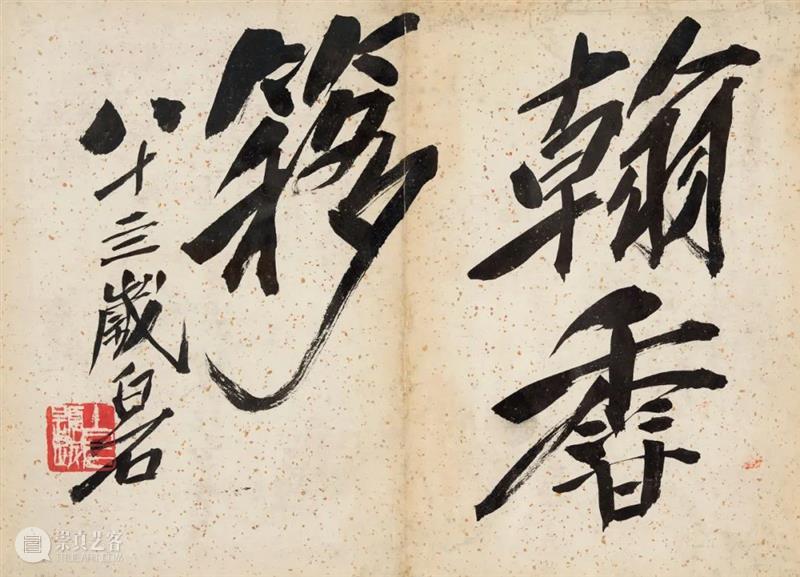 翰香
簃
八十三歲白石
崇真艺客